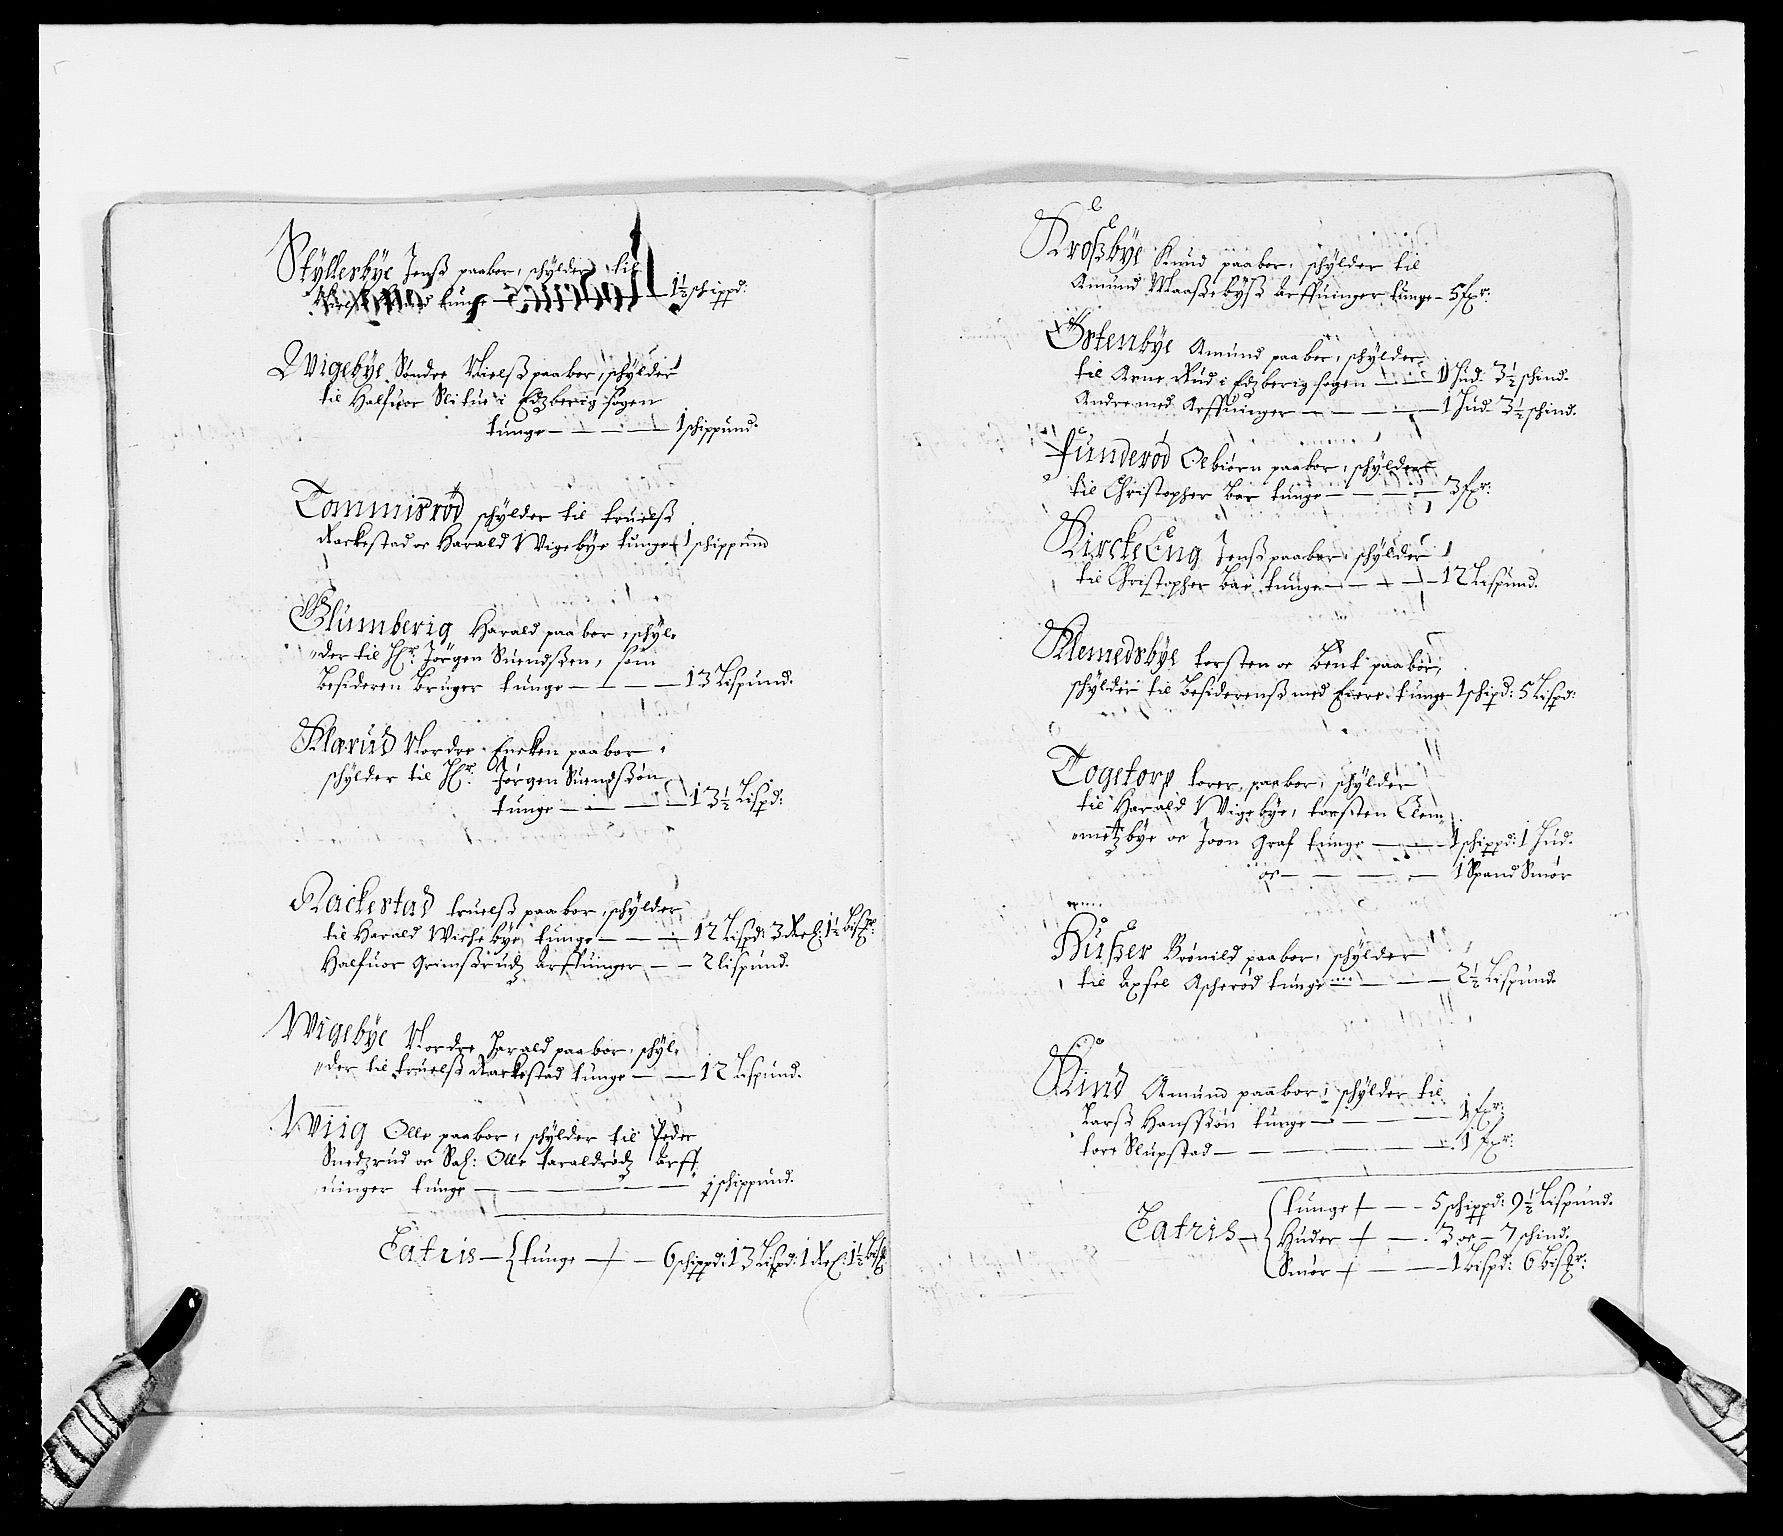 Styllesbye Jenß paabor, schylder til
tunge — 1½ schippd:
Wigebye Søndre Nielß paabor, schylder
til Halfuor Slitu i Edzberig sogen
tunge — — — — 1 schippund.
Tommisrød schylder til truelß
Rackestad oc Harald Wigebye tunge 1 schippund
Glumberig Harald paabor, schyl,
„der til Hr. Jørgen Suendßen, som
Besideren Bruger tunge — — — 13 Lispund.
Klarud Nordre. Encken paabor,
schylder til Hr. Jørgen Suendßøn
tunge — — — 13½ Lispd:
Rackestad truelß paabor, schylder
til Harald Wichebye, tunge — — — 12 Lispd: 3 Rel: 1½ Bisfr:
Halfuor Grimßrudz Arffuinger — — 2 lispund.
Wigebye Nordre Harald paabor, schyl,
„der til truelß Rackestad tunge — — 12 Lispund.
Wiig Olle paabor, schylder til Peder
Snedzrud oc Sal: Olle Haraldrødz Arff,
uinger tunge — — — — 1 schippund.
Latris — tunge — 6 schippd: 13 Lispd: 1 Rel: 1½ Bisf:
Kroßbye Knud paabor, schylder til
Amund Maaßebyß Arffuinger tunge — 5 fxr:
Østenbye Amund paabor, schylder
til Arne Rud i Edzberig sogen — — 1 Hud. 3½ schind.
Andre med Arffuinger — — — — 1 Hud 3½ schind.
Funderød Oebiørn paabor, schylder
til Christopher Bar tunge — — — 3 fxr:
Kircke Eng Jenß paabor, schylder
til Christopher Bar tunge — — — 12 Lispund.
Klemedsbye torsten oc Bent paabor,
schylder til Besiderenß med Eiere. tunge 1 schipd: 5 Lispd:
Togetorp torer paabor, schylder
til Harald Wigebye, torsten Clem„
„metzbye oc Joon Graf tunge — — 1 schippd: 1 Hud.
oc — — — — 1 Spand Smør
Hußer Brønild paabor, schylder
til Axsel Ascherød tunge — — — 2½ Lispund.
Kind Amund paabor, schylder til
Larß Hanßøn tunge — — — — 1 fxr:
tore Slupstad — — — — — 1 fxr:
Latris — tunge — — 5 schippd: 9½ Lispund.
Huder — — 3 oc — 7 schind.
Smør — — — 1 Bispd: 6 Bisfr: